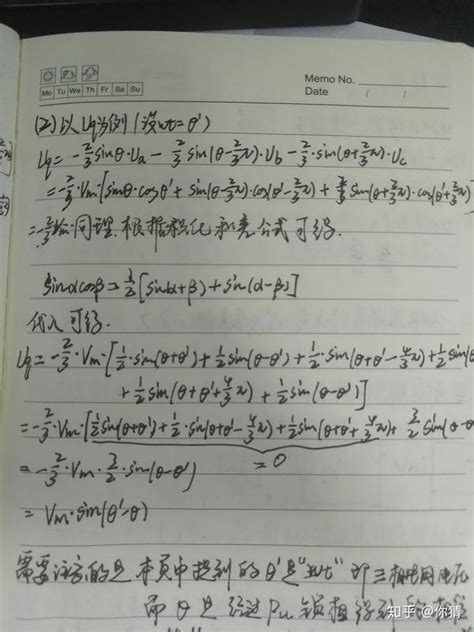 Memo No.
Mo Tu We Th Fr Sa Su
Date / /
(2) 以Uq为例 (设ωt=θ')
Uq = -2/3 sinθ·Ua - 2/3 sin(θ-2/3π)·Ub - 2/3·sin(θ+2/3π)·Uc
= -2/3·Vm[sinθ·cosθ' + sin(θ-2/3π)·cos(θ'-2/3π) + sin(θ+2/3π)·cos(θ'+2/3π)]
同理,根据积化和差公式可得.
sinαcosβ = 1/2[sin(α+β) + sin(α-β)]
代入可得.
Uq = -2/3·Vm·[1/2·sin(θ+θ') + 1/2 sin(θ-θ') + 1/2·sin(θ+θ'-4/3π) + 1/2 sin(θ
+ 1/2 sin(θ+θ'+4/3π) + 1/2 sin(θ-θ')]
= -2/3·Vm·[1/2 sin(θ+θ') + 1/2·sin(θ+θ'-4/3π) + 1/2 sin(θ+θ'+4/3π) + 3/2 sin(θ-θ
=0
= -2/3·Vm·3/2·sin(θ-θ')
= Vm·sin(θ'-θ)
需要注意的是本页中提到的θ'是"ωt"即三相电网电压
而θ是经过PLL锁相得到的
知乎 @你猜